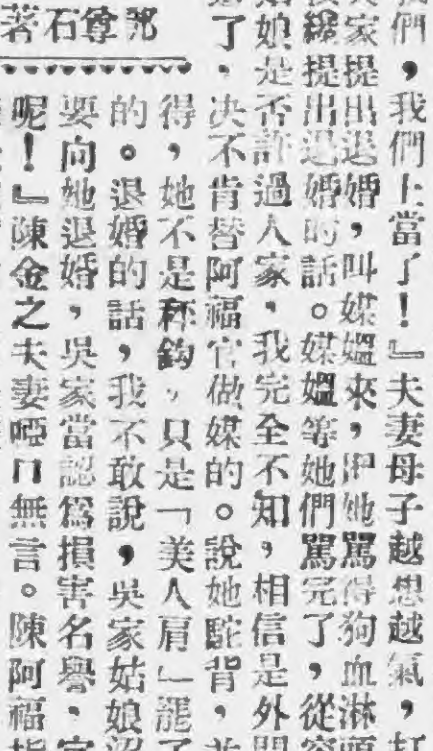 們，我們上當了！』夫妻母子越想越氣，
家提出退婚，叫媒媼來，把她罵得狗血淋
緩提出退婚的話。媒媼等她們罵完了，從
娘是否許過人家，我完全不知，相信是外
了，决不肯替阿福官做媒的。說她駝背，
得，她不是秤鈎，只是「美人肩」罷
的。退婚的話，我不敢說，吳家姑娘
要向她退婚，吳家當認爲損害名譽，
呢！』陳金之夫妻啞口無言。陳阿福
鄧尊石著